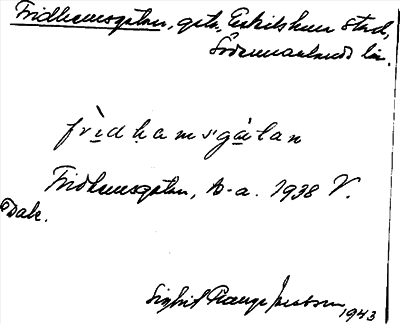 Fridhemsgatan, gata, Eskilstuna stad,
Södermanlands län.
frìdhamsgàtan
Fridhemsgatan, A-a. 1938 V.
Dahl.
Sigfrid Jacobson
1943